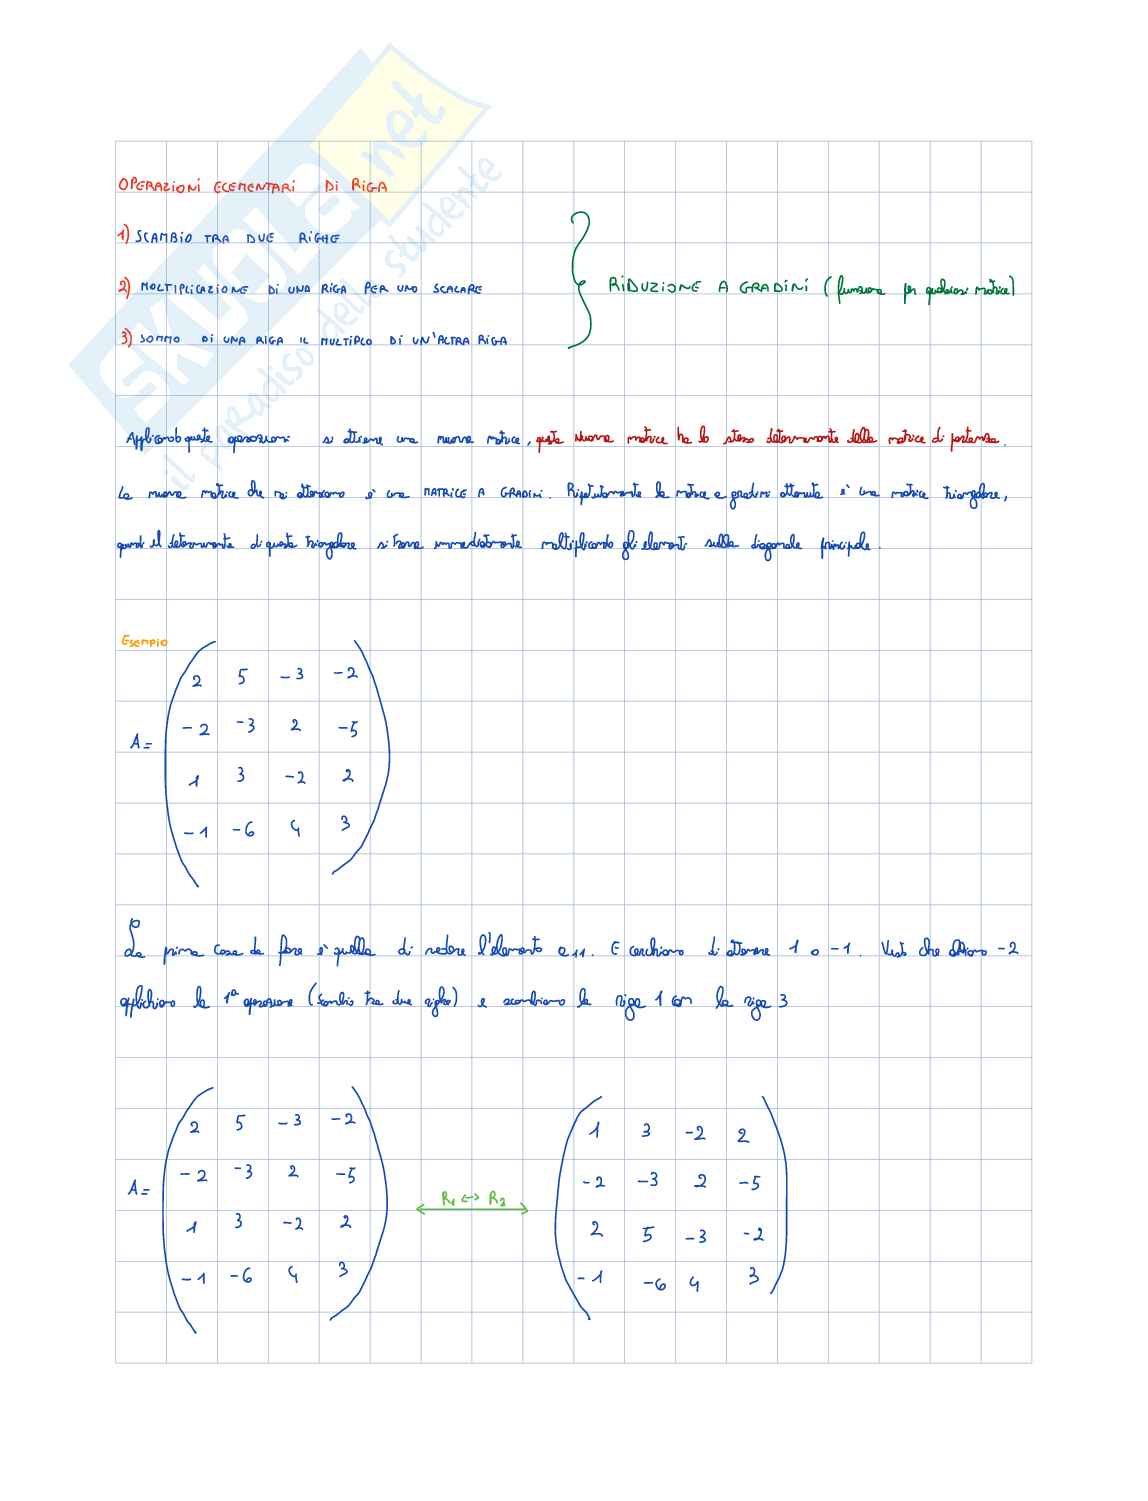 SKUOLA.net
il paradiso dello studente
OPERAZIONI ELEMENTARI DI RIGA
1) SCAMBIO TRA DUE RIGHE
2) MOLTIPLICAZIONE DI UNA RIGA PER UNO SCALARE
3) SOMMO DI UNA RIGA IL MULTIPLO DI UN'ALTRA RIGA
RIDUZIONE A GRADINI (funziona per qualsiasi matrice)
Applicando queste operazioni si ottiene una nuova matrice, questa nuova matrice ha lo stesso determinante della matrice di partenza.
La nuova matrice che noi otteniamo è una MATRICE A GRADINI. la matrice a gradini ottenuta è una matrice triangolare,
quindi il determinante di questa triangolare si trova immediatamente moltiplicando gli elementi sulla diagonale principale.
Esempio
2 5 -3 -2
-2 -3 2 -5
A =
1 3 -2 2
-1 -6 4 3
La prima cosa da fare è quella di vedere l'elemento a11. E cerchiamo di ottenere 1 o -1. Visto che abbiamo -2
applichiamo la 1ª operazione (scambio tra due righe) e scambiamo la riga 1 con la riga 3
2 5 -3 -2 1 3 -2 2
-2 -3 2 -5 -2 -3 2 -5
A = R1 <-> R3
1 3 -2 2 2 5 -3 -2
-1 -6 4 3 -1 -6 4 3